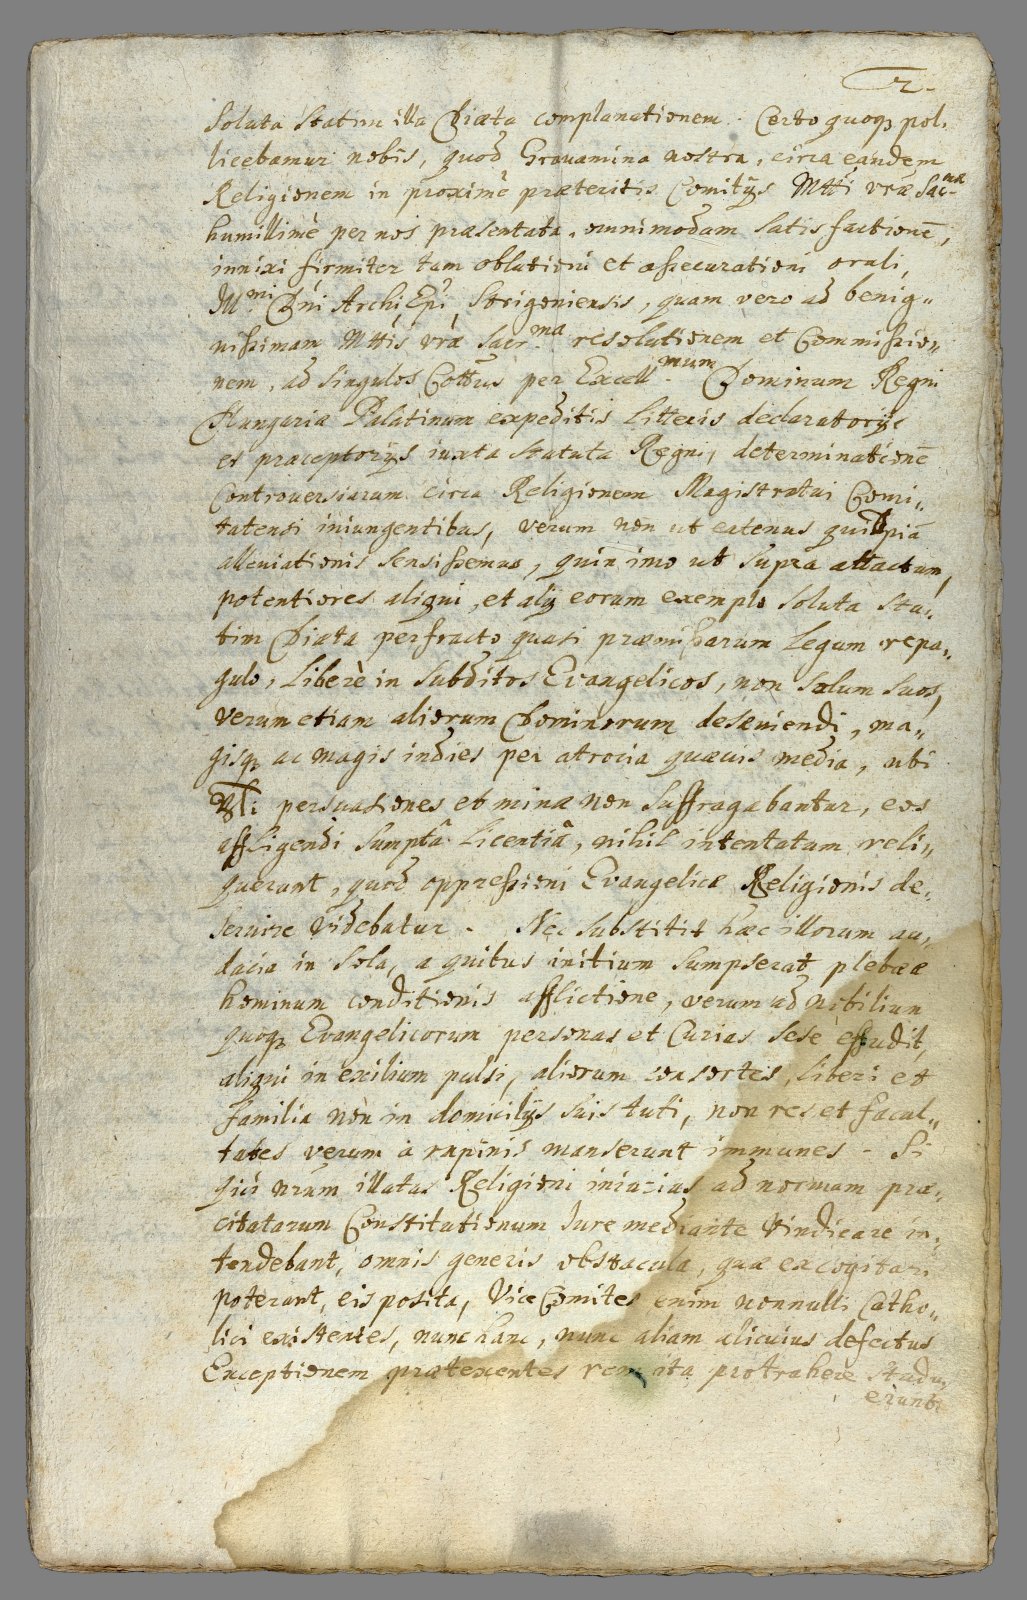 2.
soluta statim illa Diæta complanationem. Certo quoq3 pol„
licebamur nobis, quod Gravamina nostra, circa eandem
Religionem in proximè præteritis Comitijs Mtti vræ Sac-mæ
humillimè per nos præsentata, omnimodam satisfactionē,
innixi firmiter tam oblationi et assecurationi orali,
Ill-mi Dni Archi Epi, Strigoniensis, quam vero ad benig„
nissimam Mttis vræ Sacr-ma resolutionem et Commissio„
nem, ad singulos Cottus per Excell-mum Dominum Regni
Hungariæ Palatinum expeditis litteris declaratorijs
et præceptorijs iuxta statuta Regni, determinationē
Controversiarum circa Religionem Magistratui Comi„
tatensi iniungentibus, verum non ut eatenus quidpiā
alleviationis sensissemus, quin imo ut supra attactum,
potentiores aliqui, et alij eorum exemplo soluta sta„
tim Diæta perfracto quasi præmissarum Legum repa„
gulo, Liberè in subditos Evangelicos, non solum suos,
verum etiam aliorum Dominorum desæviendi, ma„
gisq3 ac magis indies per atrocia quævis media, ubi
persuasiones et minæ non suffragabantur, eos
affligendi sumptâ licentiâ, nihil intentatum reli„
querunt, quod oppressioni Evangelicæ Religionis de„
servire videbatur. Nec substitit hæc illorum au„
dacia in sola, a quibus initium sumpserat plebææ
hominum conditionis afflictione, verum ad nobilium
quoq3 Evangelicorum personas et Curias sese effudit,
aliqui in exilium pulsi, aliorum consortes, liberi et
familia non in domicilijs suis tuti, non res et facul„
tates verum à rapinis manserunt immunes. Si
qui nrum illatas Religioni iniurias ad normam præ„
citatarum Constitutionum Jure mediante vindicare in„
tendebant, omnis generis obstacula, quæ excogitari
poterant, eis posita, Vice Comites enim nonnulli Catho„
lici existentes, nunc hanc, nunc aliam alicuius defectus
Exceptionem prætexentes rem ita protrahere studu„
erunt